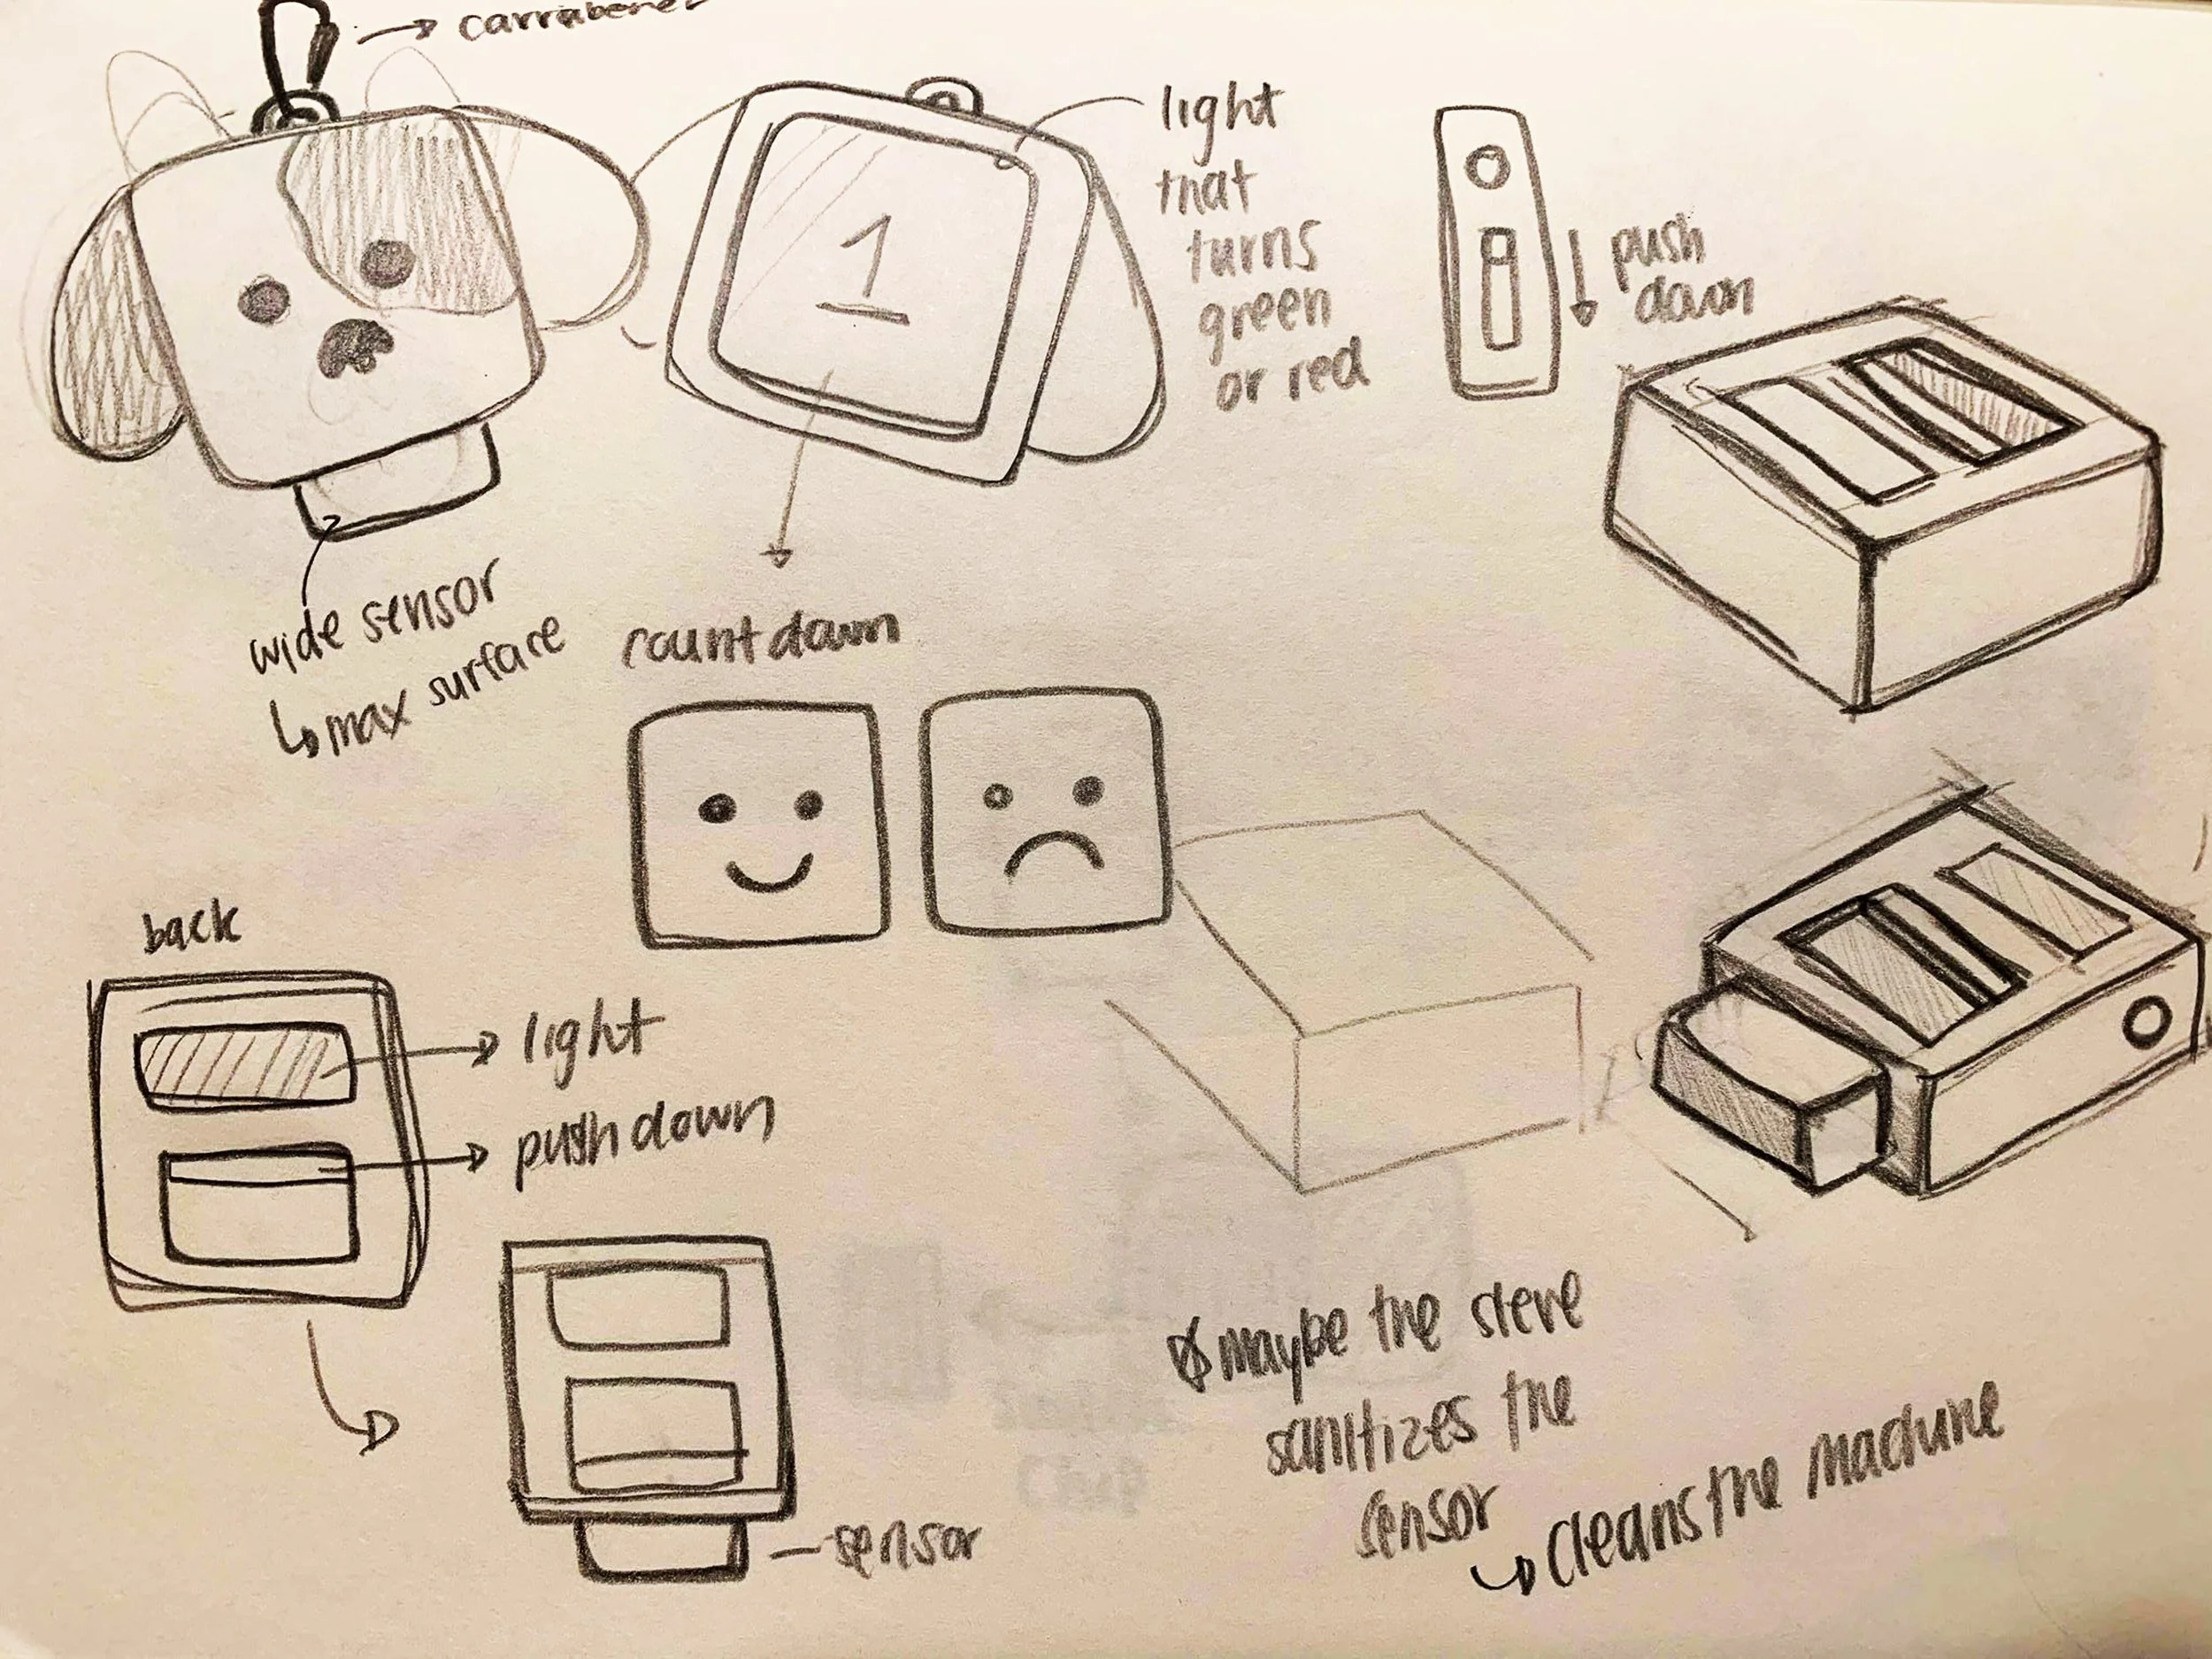 carrabener
light
that
turns
green
or red
push
down
1
wide sensor
max surface
countdown
back
light
push down
sensor
maybe the sleve
sanitizes the
sensor
cleans the machine